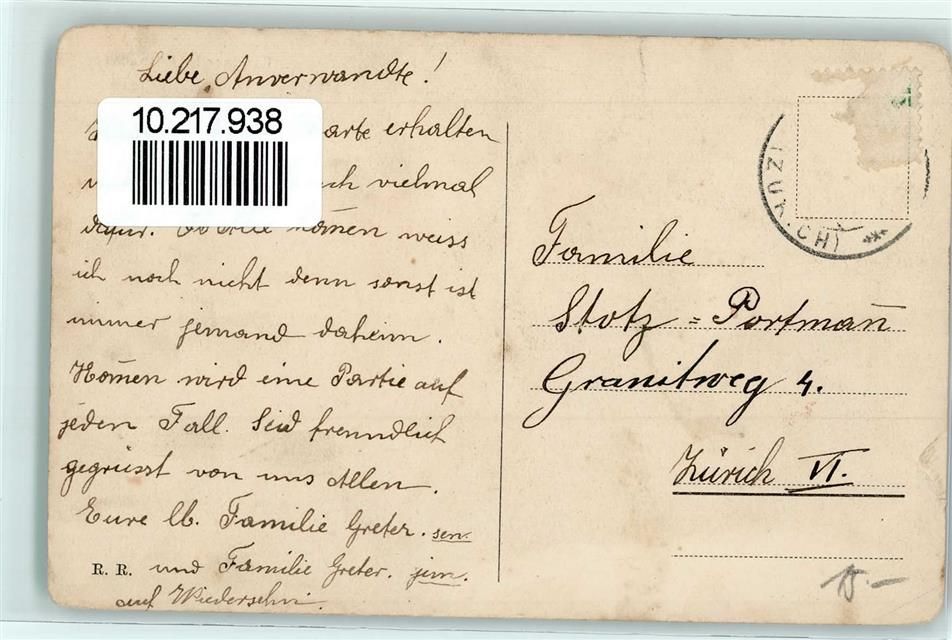 Liebe Anverwandte!
10.217.938
arte erhalten
vielmal
dafür. kom̄en weiss
ich noch nicht denn sonst ist
immer jemand daheim.
Kom̄en wird eine Partie auf
jeden Fall. Seid freundlich
gegrüsst von uns Allen.
Eure lb. Familie Greter. sen.
R. R. und Familie Greter. jun.
auf Wiedersehn.
(ZÜRICH)
Familie
Stotz = Portman̄
Granitweg 4.
Zürich VI.
15.-